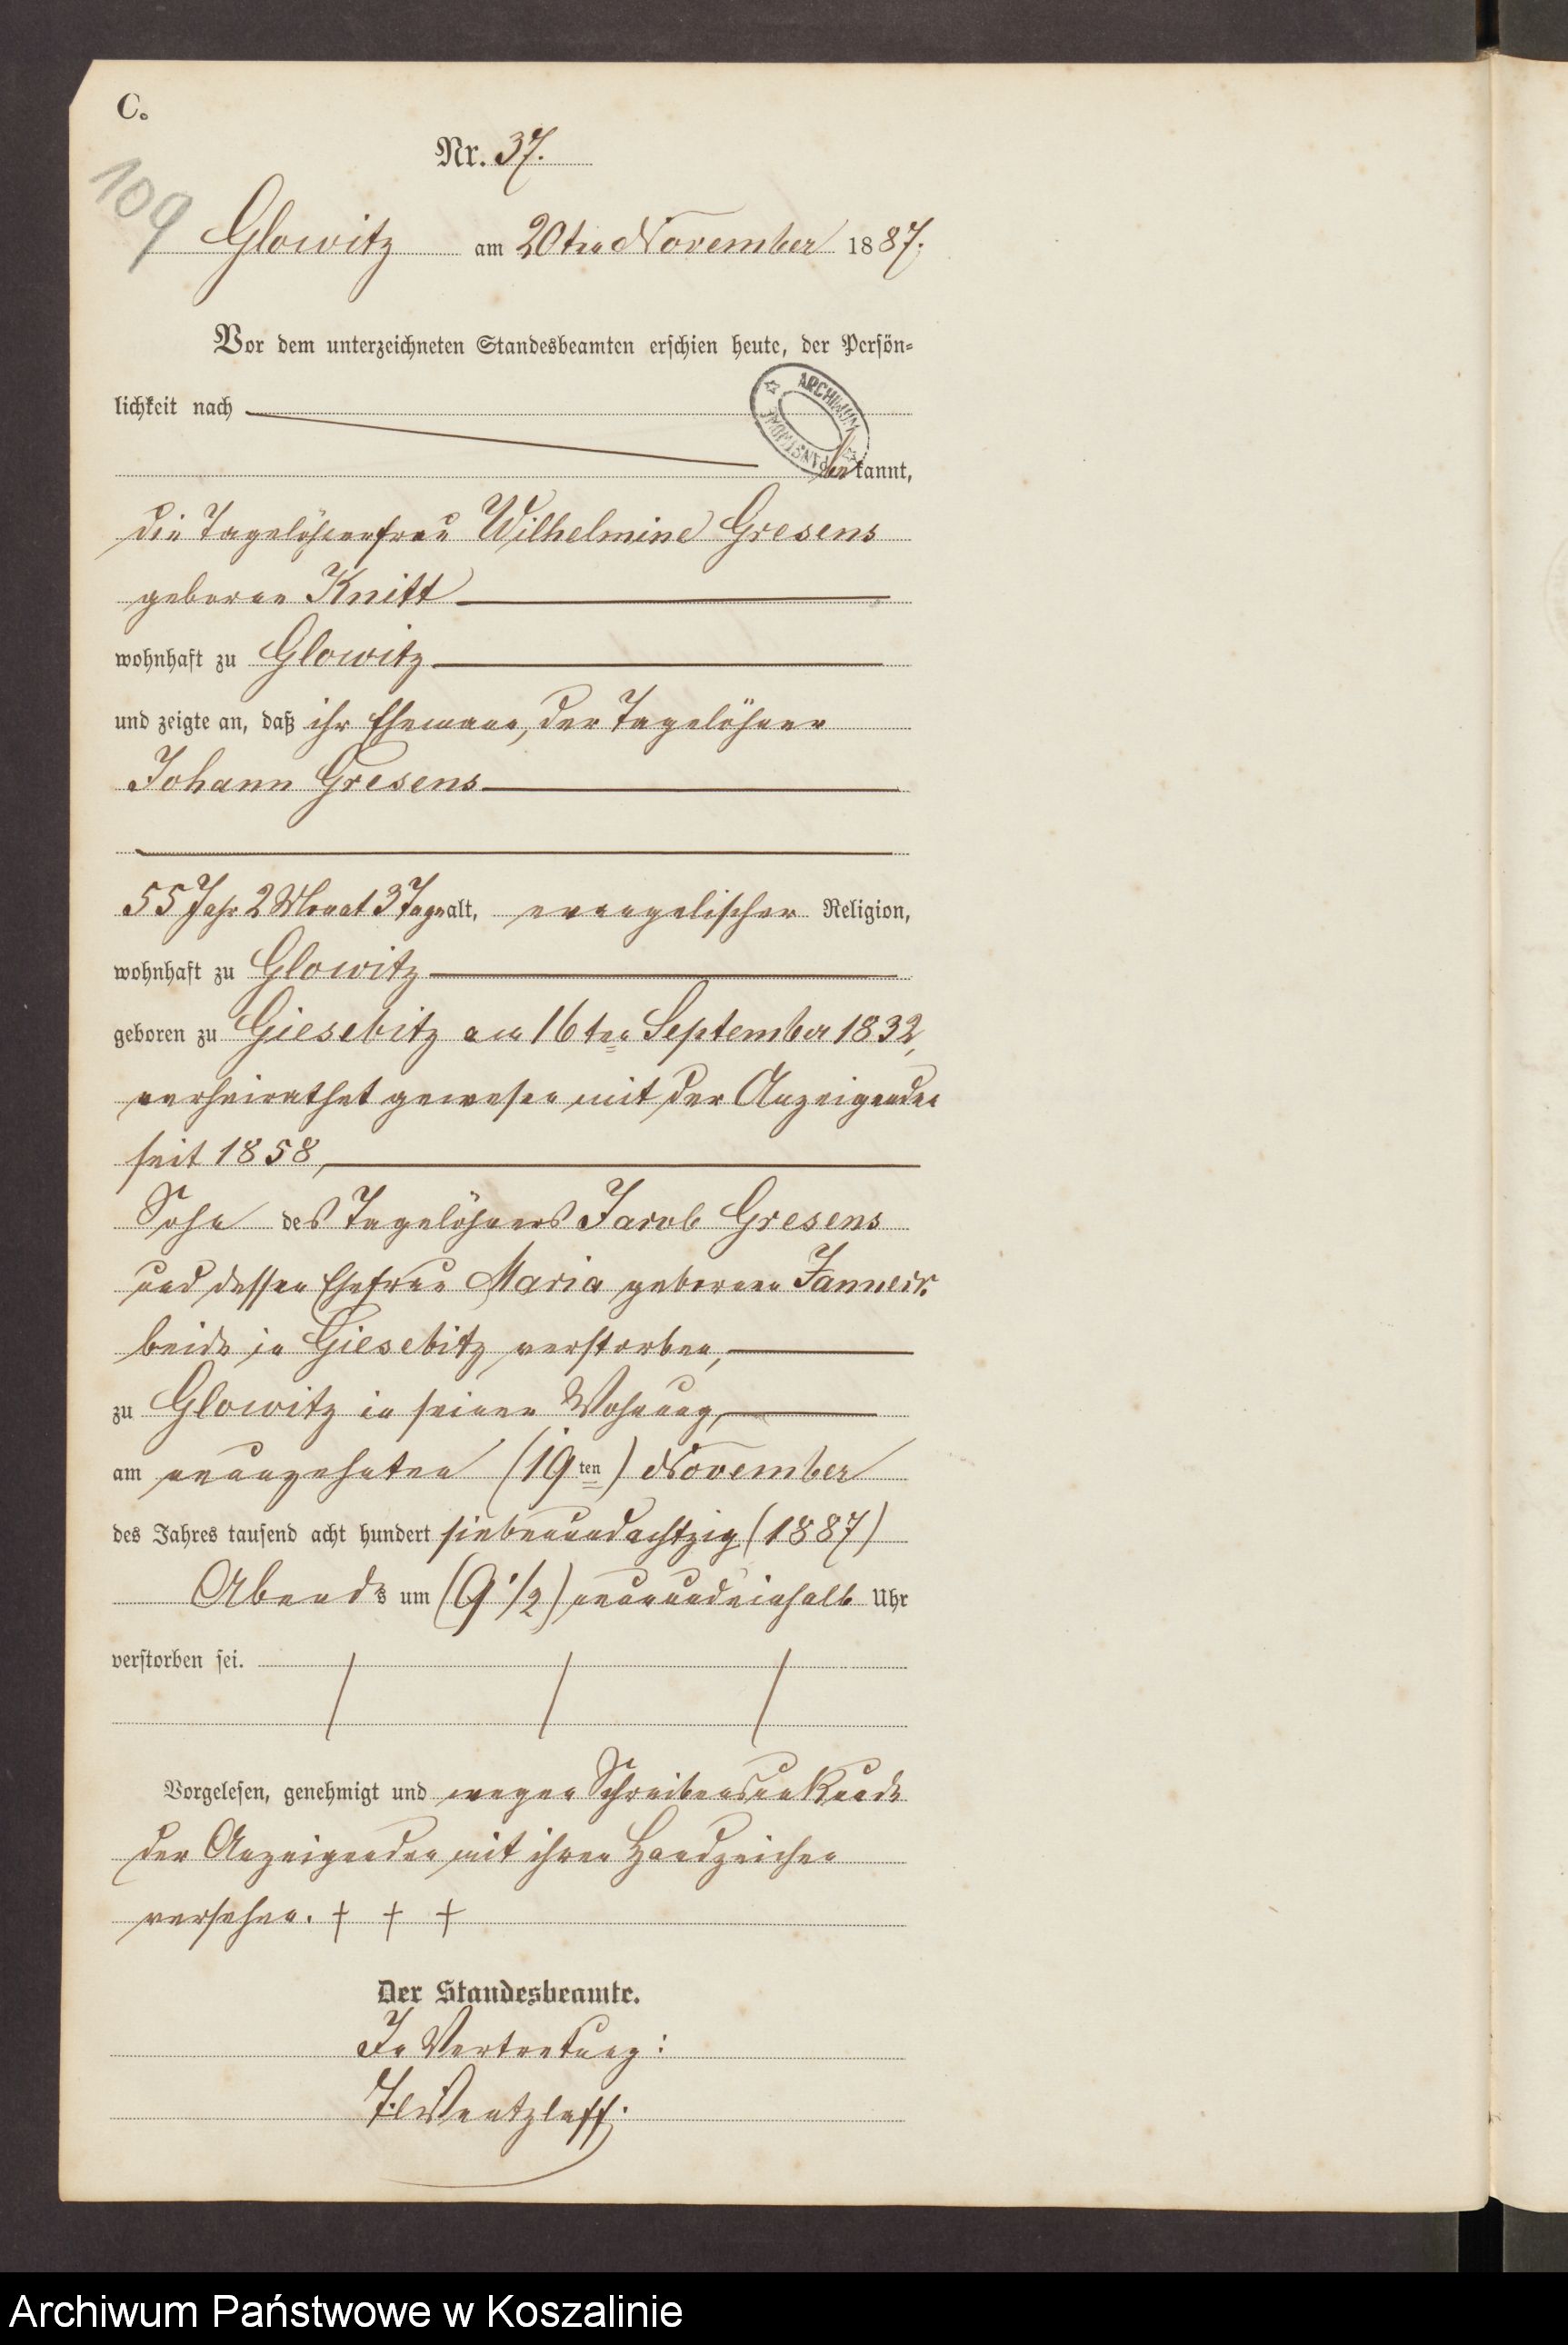 C.
109
Nr. 37.
Glowitz am 20ten November 1887.
Vor dem unterzeichneten Standesbeamten erschien heute, der Persön-
lichkeit nach
ARCHIWUM PAŃSTWOWE
bekannt,
die Tagelöhnerfrau Wilhelmine Gresens
geborne Knitt
wohnhaft zu Glowitz
und zeigte an, daß ihr Ehemann, der Tagelöhner
Johann Gresens
55 Jahr 2 Monat 3 Tage alt, evangelischer Religion,
wohnhaft zu Glowitz
geboren zu Giesebitz am 16ten September 1832,
verheirathet gewesen mit der Anzeigenden
seit 1858,
Sohn des Tagelöhners Jacob Gresens
und dessen Ehefrau Maria gebornen
beide in Giesebitz verstorben,
zu Glowitz in seiner Wohnung,
am neunzehnten (19ten) November
des Jahres tausend acht hundert siebenundachtzig (1887)
Abends um (9 1/2) neunundeinhalb Uhr
verstorben sei.
Vorgelesen, genehmigt und wegen Schreibensunkunde
der Anzeigenden mit ihren Handzeichen
versehen. † † †
Der Standesbeamte.
In Vertretung:
Wentzlaff.
Archiwum Państwowe w Koszalinie